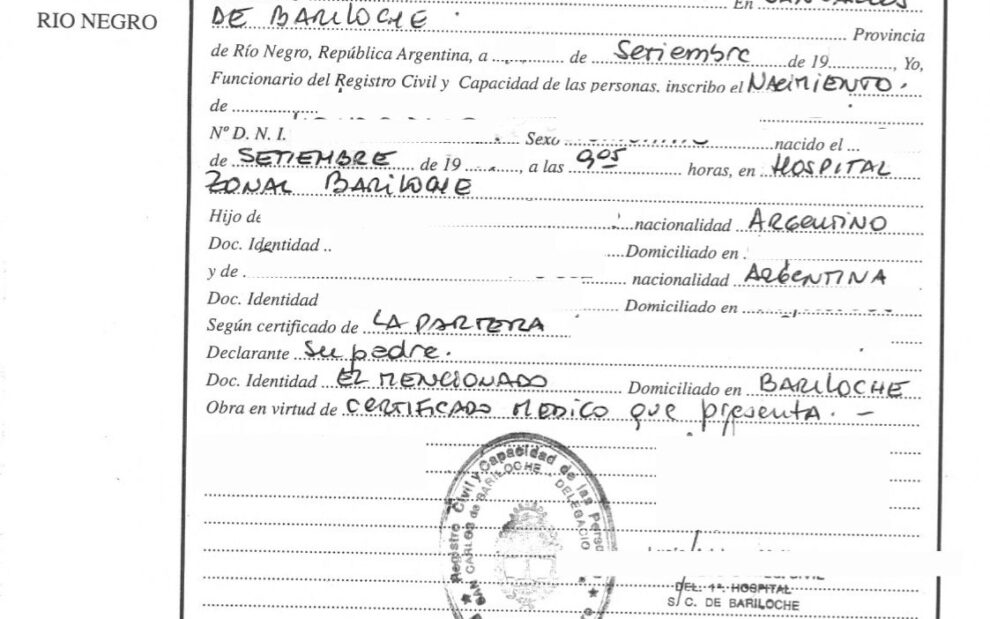 En SAN CARLOS
RIO NEGRO
DE BARILOCHE
Provincia
de Río Negro, República Argentina, a ............ de Setiembre de 19........, Yo,
Funcionario del Registro Civil y Capacidad de las personas, inscribo el NACIMIENTO.
de
Nº D. N. I. Sexo nacido el ...
de SETIEMBRE de 19........, a las 9 05 horas, en HOSPITAL
ZONAL BARILOCHE
Hijo de nacionalidad ARGENTINO
Doc. Identidad .. Domiciliado en
y de nacionalidad ARGENTINA
Doc. Identidad Domiciliado en
Según certificado de LA PARTERA
Declarante Su padre.
Doc. Identidad EL MENCIONADO Domiciliado en BARILOCHE
Obra en virtud de CERTIFICADO MEDICO que presenta. —
Registro Civil y Capacidad de las Perso
SAN CARLOS de BARILOCHE - DELEGACIO
DEL. 1ª. HOSPITAL
S/C. DE BARILOCHE